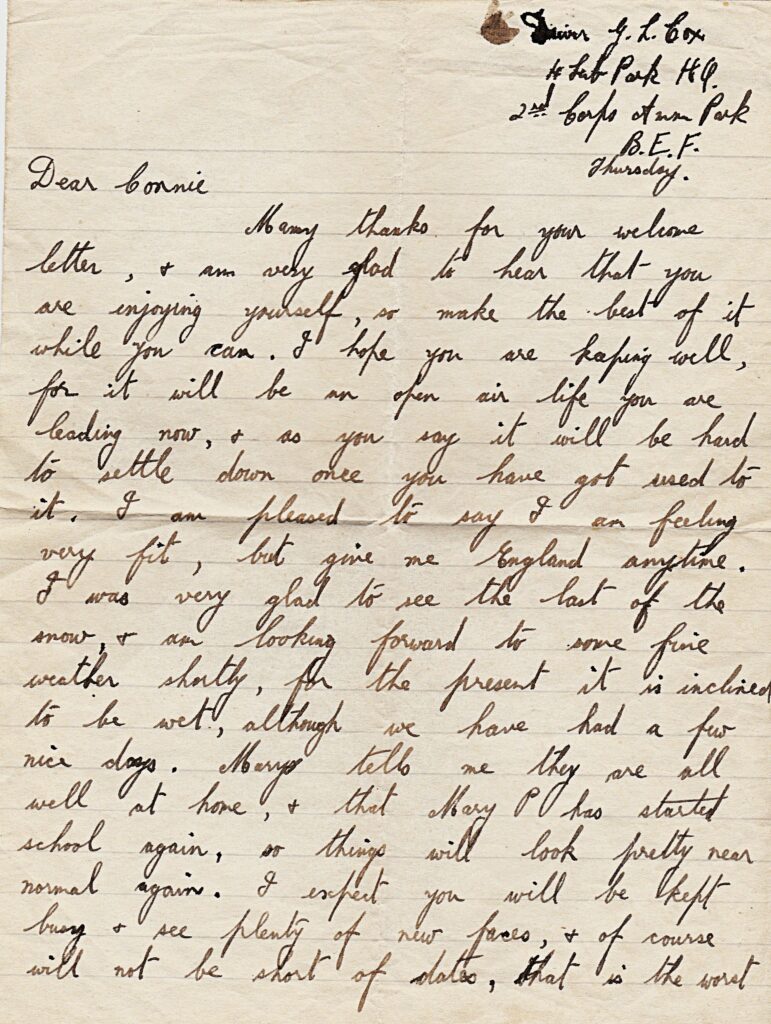 Driver G. L. Cox
H Sub Park HQ.
2nd Corps Amm Park
B.E.F.
Thursday.
Dear Connie
Many thanks for your welcome
letter, & am very glad to hear that you
are enjoying yourself, so make the best of it
while you can. I hope you are keeping well,
for it will be an open air life you are
leading now, & as you say it will be hard
to settle down once you have got used to
it. I am pleased to say I am feeling
very fit, but give me England anytime.
I was very glad to see the last of the
snow, & am looking forward to some fine
weather shortly, for the present it is inclined
to be wet, although we have had a few
nice days. Marys tells me they are all
well at home, & that Mary P has started
school again, so things will look pretty near
normal again. I expect you will be kept
busy & see plenty of new faces, & of course
will not be short of dates, that is the worst